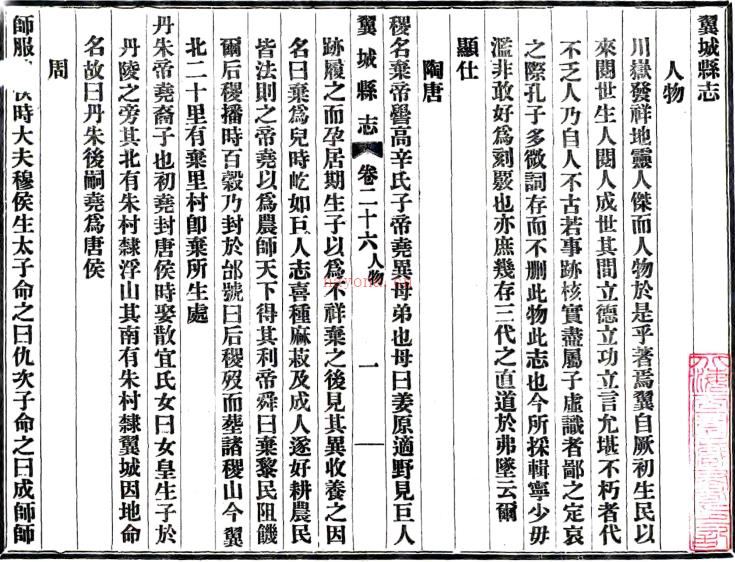 翼城縣志
人物
川嶽發祥地靈人傑而人物於是乎著焉翼自厥初生民以
來閱世生人閱人成世其間立德立功立言允堪不朽者代
不乏人乃自人不古若事跡核實盡屬子虛識者鄙之定哀
之際孔子多微詞存而不刪此物此志也今所採輯寧少毋
濫非敢好爲刻覈也亦庶幾存三代之直道於弗墜云爾
顯仕
陶唐
稷名棄帝嚳高辛氏子帝堯異母弟也母曰姜原適野見巨人
翼城縣志 卷二十六 人物 一
跡履之而孕居期生子以爲不祥棄之後見其異收養之因
名曰棄爲兒時屹如巨人志喜種麻菽及成人遂好耕農民
皆法則之帝堯以爲農師天下得其利帝舜曰棄黎民阻饑
爾后稷播時百穀乃封於邰號曰后稷歿而塟諸稷山今翼
北二十里有棄里村卽棄所生處
丹朱帝堯裔子也初堯封唐侯時娶散宜氏女曰女皇生子於
丹陵之旁其北有朱村隸浮山其南有朱村隸翼城因地命
名故曰丹朱後嗣堯爲唐侯
周
師服 侯時大夫穆侯生太子命之曰仇次子命之曰成師師
hayona.cn